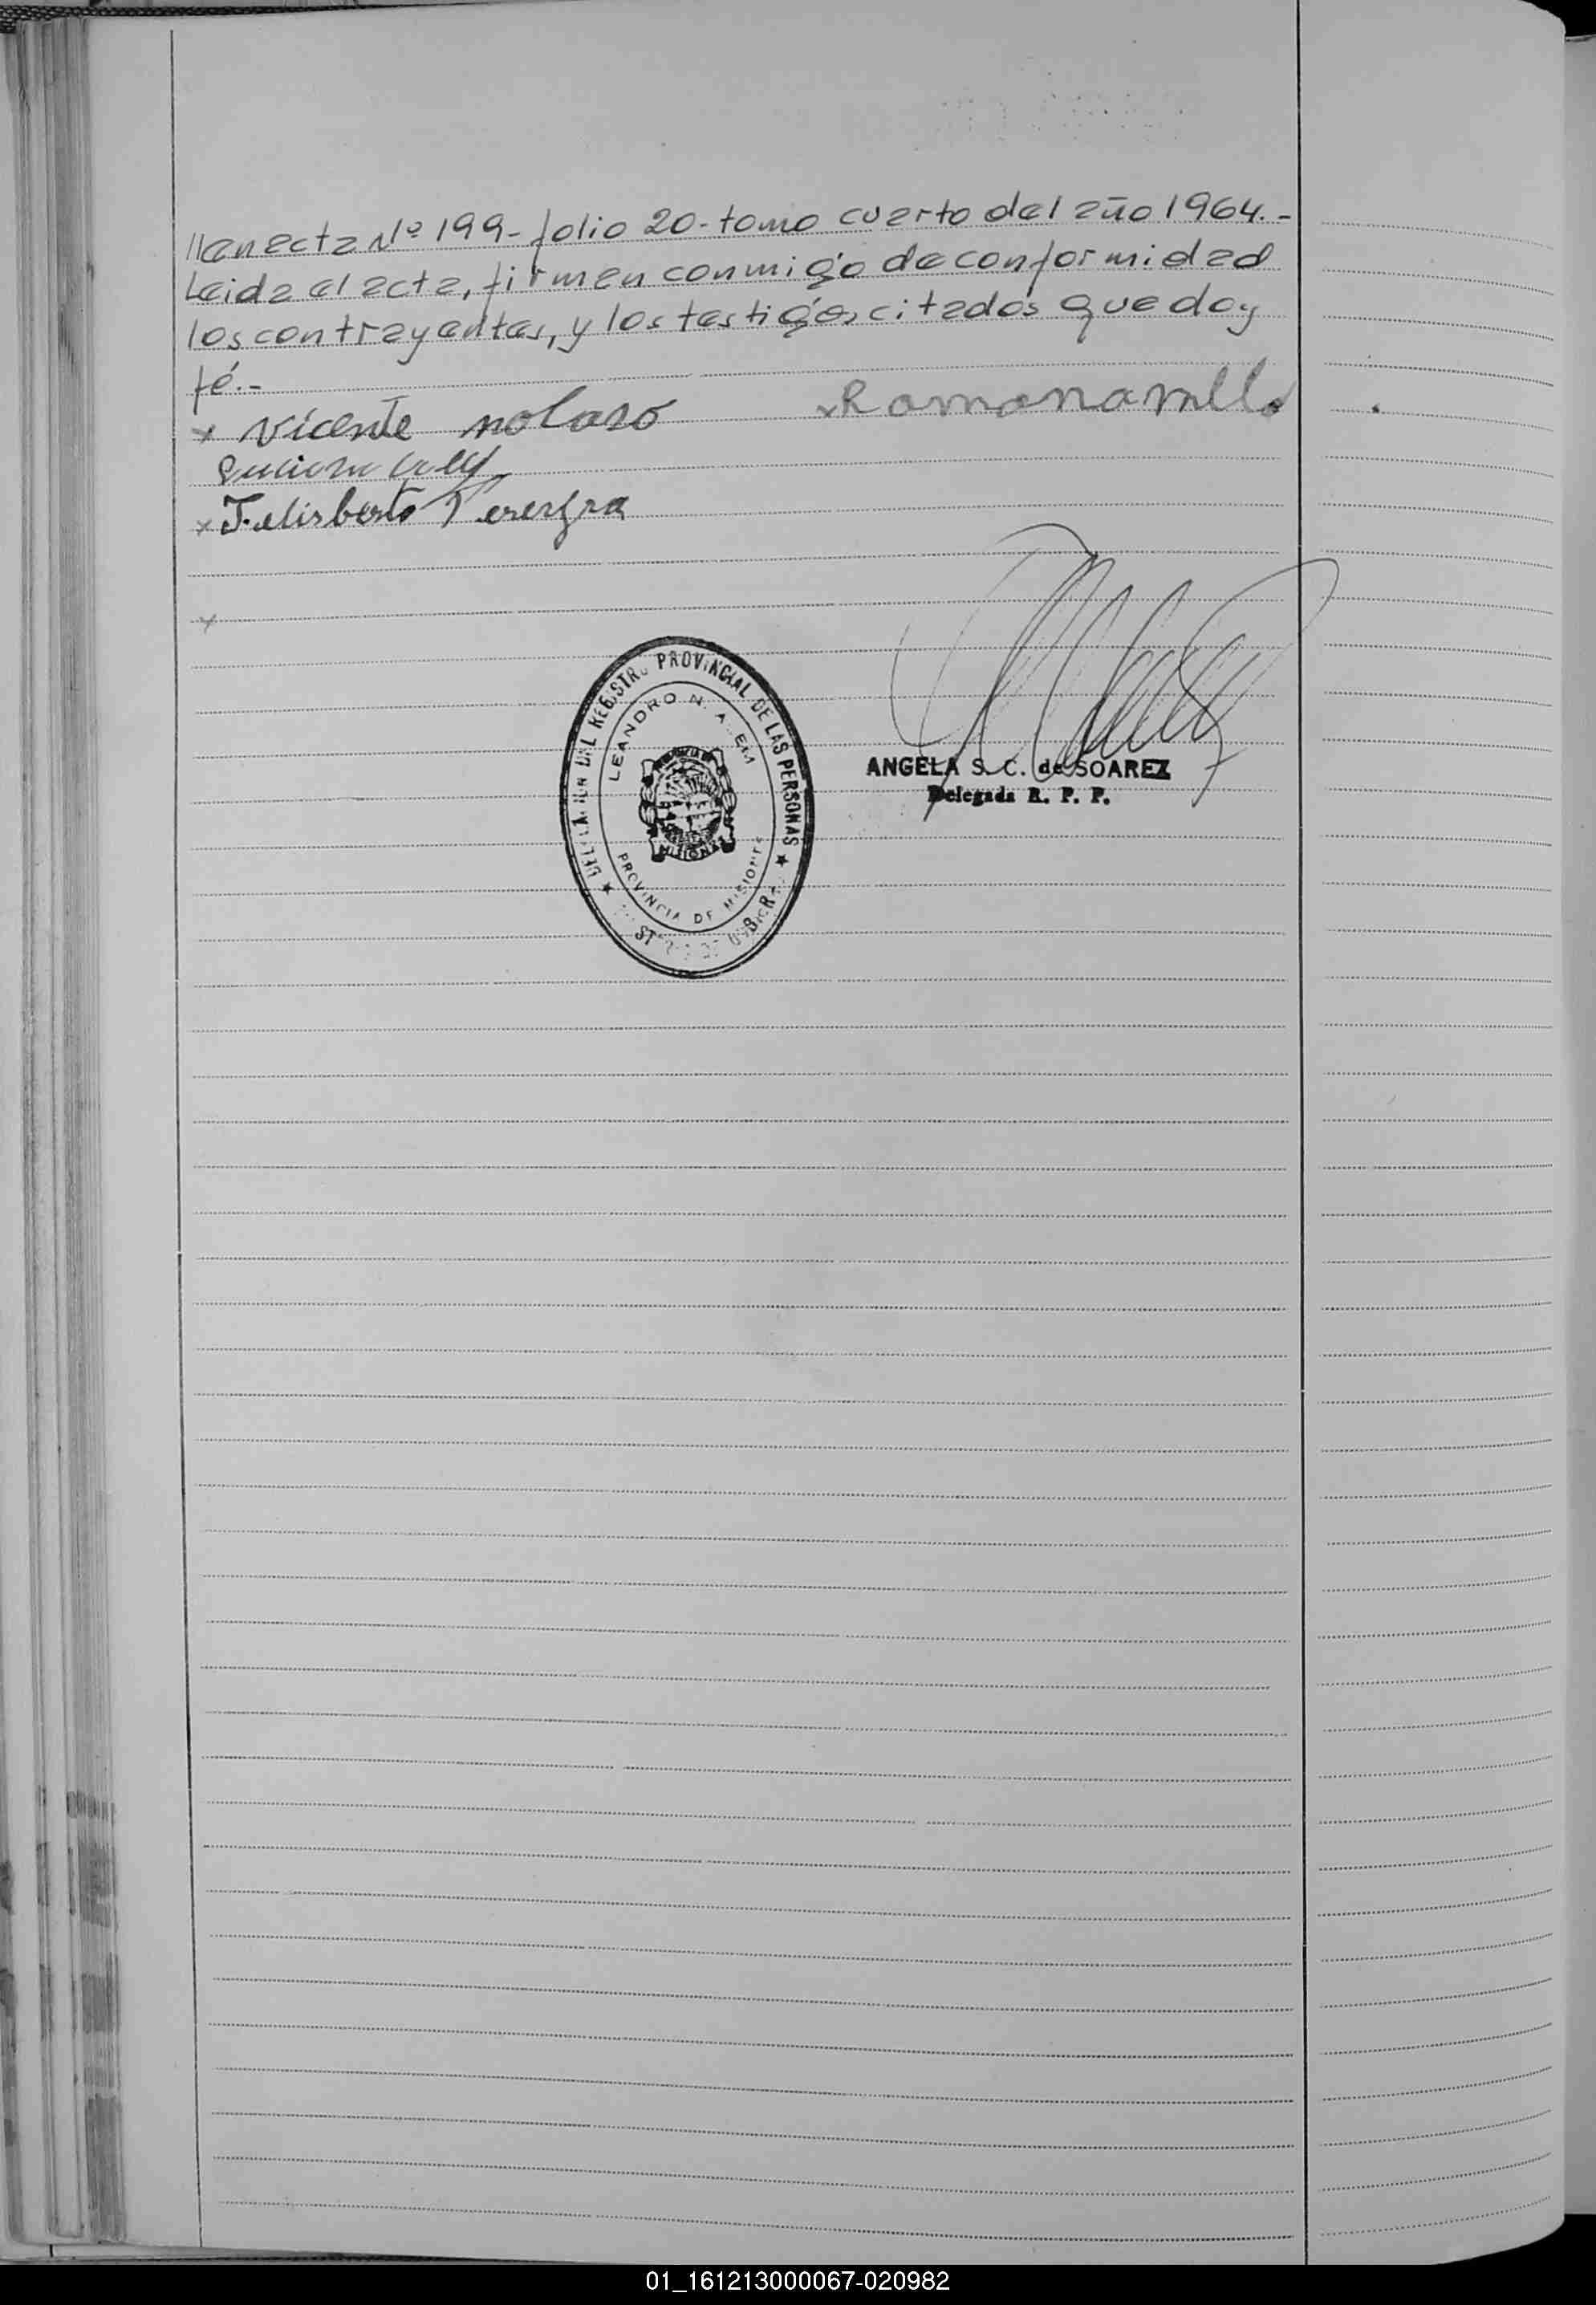 //en acta Nº 199- folio 20- tomo cuarto del año 1964.-
Leida el acta, firman conmigo de conformidad
los contrayentes, y los testigos citados que doy
fé.-
x Vicente nolaso
x Romona mello
x Felisberto Pereyra
x
DELEGACION DEL REGISTRO PROVINCIAL DE LAS PERSONAS
LEANDRO N. ALEM
MISIONES
PROVINCIA DE MISIONES
ANGELA S. C. de SOAREZ
Delegada R. P. P.
01_161213000067-020982